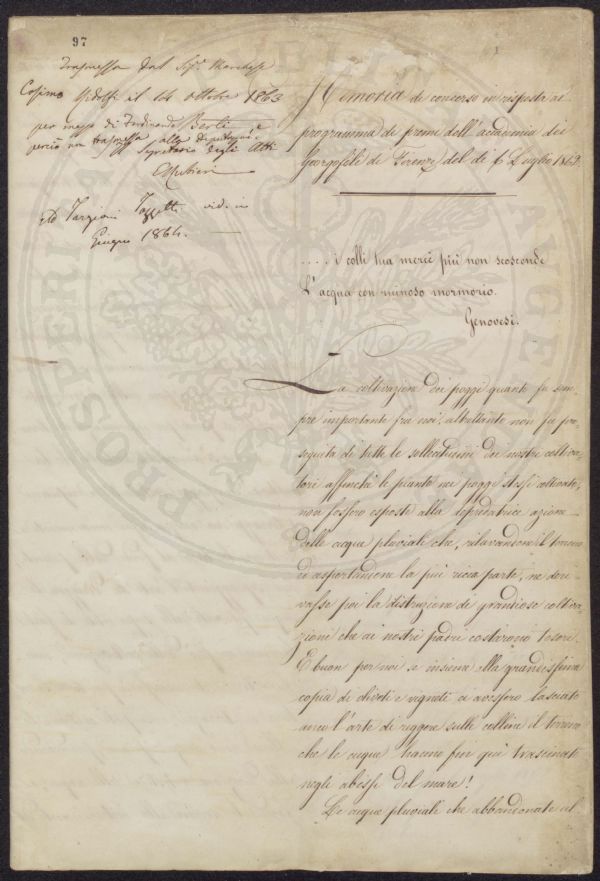 97
1
Trasmessa dal Sigr. Marchese
Cosimo Ridolfi il 14 ottobre 1863
per mezzo di Ferdinando Berti e
perciò non trasmessa alla
Segretario degli Atti
Targioni Tozzetti vide in
Giugno 1864.
Memoria di concorso in risposta al
programma di premi dell'accademia dei
Georgofili di Firenze, del dì 6 Luglio 1862.
.... i colli tua mercè più non scoscende
L'acqua con ruinoso mormorio.
Genovesi.
La coltivazione dei poggi quanto fu sem-
pre importante fra noi, altrettanto non fu pro-
seguita di tutte le sollecitudini dei nostri coltiva-
tori affinchè le piante nei poggi stessi allevate,
non fossero esposte alla depredatrice azione
delle acque pluviali che, dilavandone il terreno
ed asportandone la più ricca parte, ne deri-
vasse poi la distruzione di grandiose coltiva-
zioni che ai nostri padri costarono tesori.
E buon per noi se insieme alla grandissima
copia di oliveti e vigneti ci avessero lasciato
anco l'arte di reggere sulle colline il terreno
che le acque hanno fin quì trascinato
negli abissi del mare!
Le acque pluviali che abbandonate al